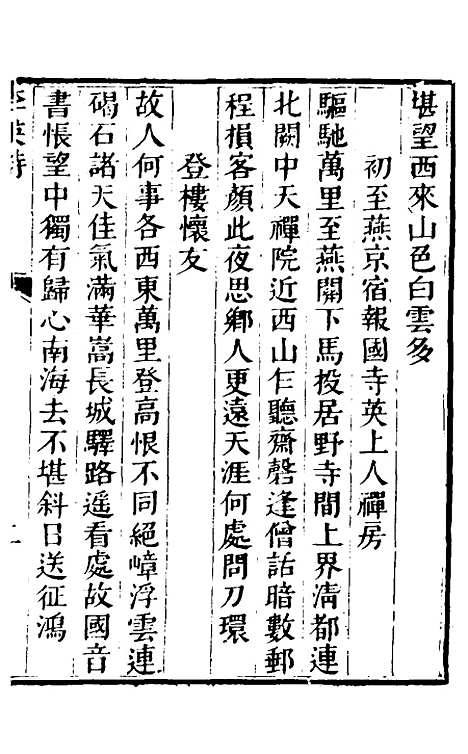 堪望西來山色白雲多
初至燕京宿報國寺英上人禪房
驅馳萬里至燕關下馬投居野寺間上界清都連
北闕中天禪院近西山乍聽齋磬逢僧話暗數郵
程損客顏此夜思鄉人更遠天涯何處問刀環
登樓懷友
故人何事各西東萬里登高恨不同絕嶂浮雲連
碣石諸天佳氣滿華嵩長城驛路遥看處故國音
書悵望中獨有歸心南海去不堪斜日送征鴻